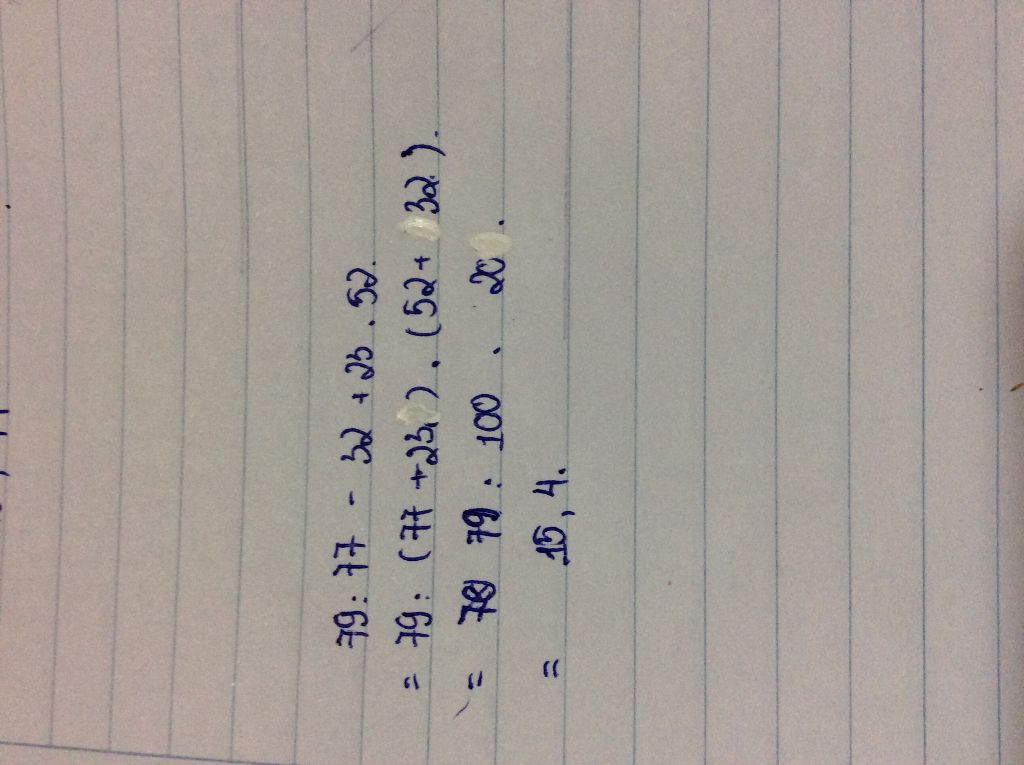 79 : 77 - 32 + 23 . 52.
= 79 : (77 + 23) . (52 + 32).
= 79 : 100 . 20.
= 15,4.